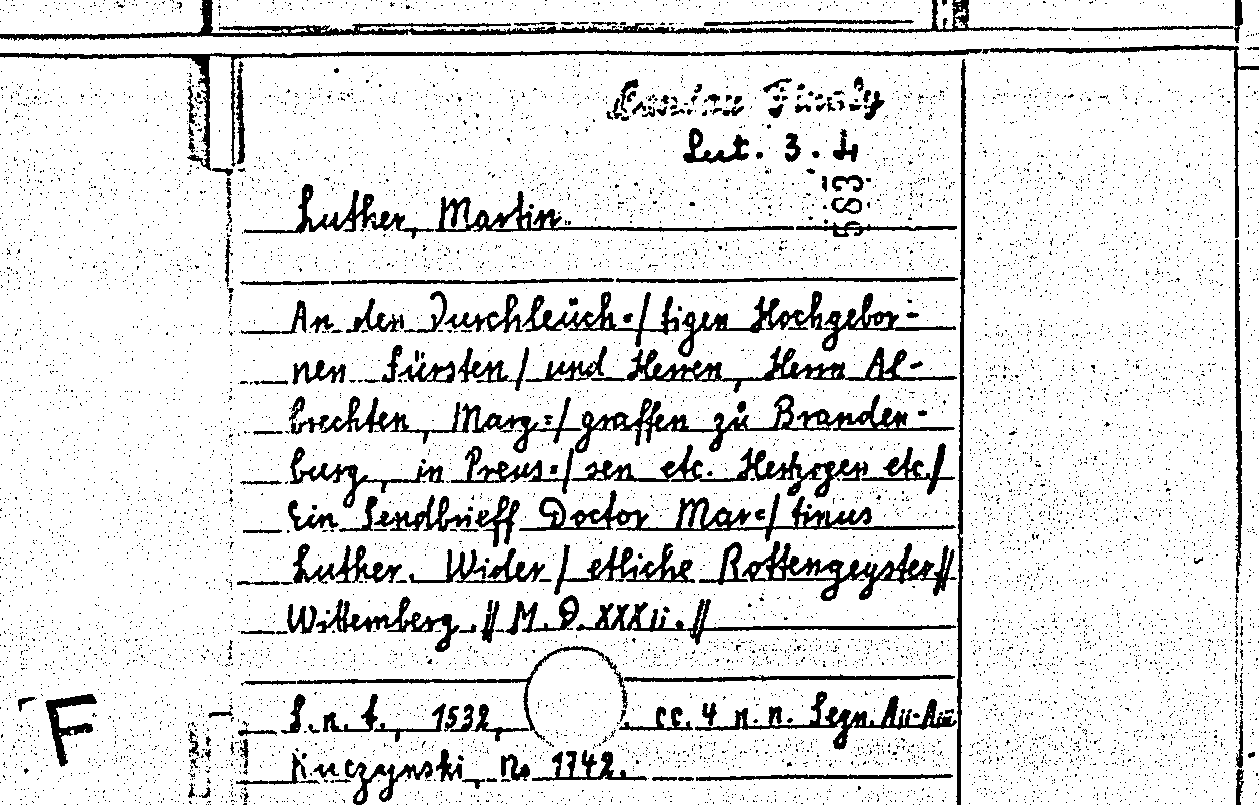 Landau Finaly
Lut. 3. 4
583
Luther, Martin
An den Durchleüch=/ tigen Hochgebor-
nen Fürsten / und Herren, Herrn Al-
brechten, Marg=/ graffen zů Branden-
burg, in Preus=/ sen etc. Hertzogen etc./
Ein Sendbrieff Doctor Mar=/ tinus
Luther. Wider / etliche Rottengeyster //
Wittemberg. // M. D. XXXii. //
S. n. t., 1532, cc. 4 n. n. Segn. Aii-Aiii
Kuczynski, No 1742.
F